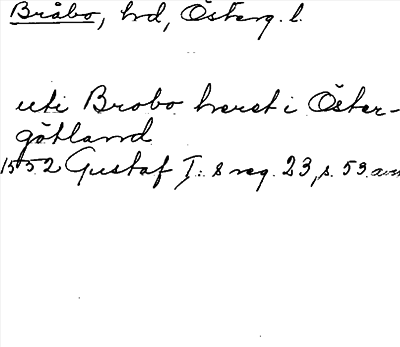 Bråbo, hd, Österg. l.
uti Brobo heret i Öster-
götland
1552 Gustaf I:s reg. 23, s. 53. avs